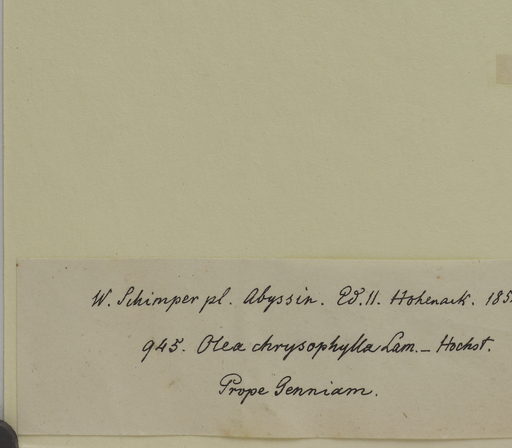 W. Schimper pl. Abyssin. Ed. II. Hohenack. 185
945. Olea chrysophylla Lam. – Hochst.
Prope Genniam.